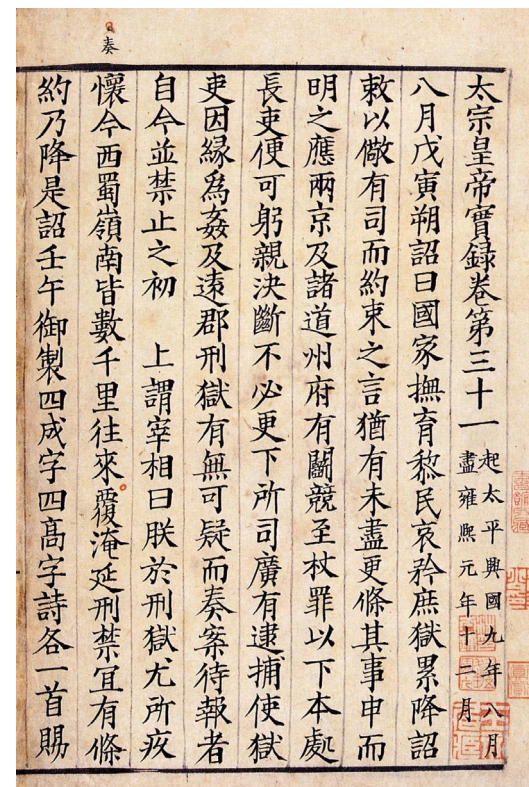 太宗皇帝實録卷第三十一
起太平興國九年八月
盡雍熈元年十二月
八月戊寅朔詔曰國家撫育黎民哀矜庶獄累降詔
敕以儆有司而約束之言猶有未盡更條其事申而
明之應兩京及諸道州府有鬭競至杖罪以下本處
長吏便可躬親決斷不必更下所司廣有逮捕使獄
吏因縁為姦及逺郡刑獄有無可疑而奏案待報者
自今並禁止之初 上謂宰相曰朕於刑獄尤所疚
懷今西蜀嶺南皆數千里往來覆淹延刑禁宜有條
奏
約乃降是詔壬午御製四成字四髙字詩各一首賜